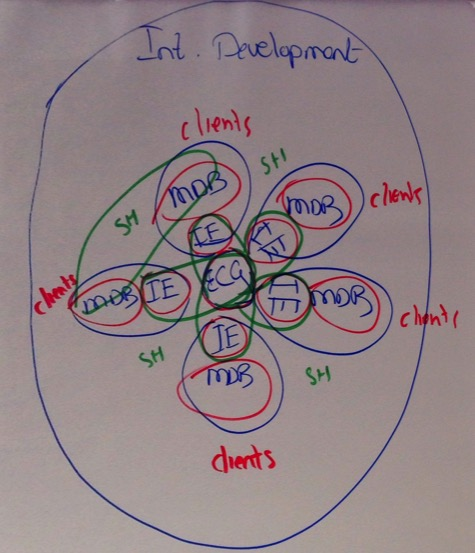 Int. Development
clients
SH
MDB
MDB
clients
SH
IE
IE
clients
MDB
IE
ECG
IE
MDB
clients
IE
SH
MDB
SH
clients